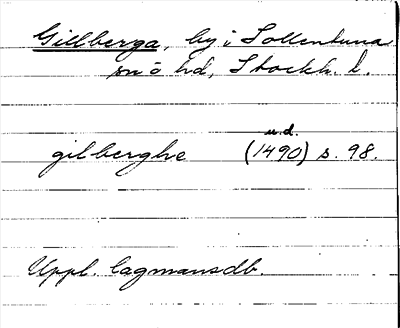 Gillberga, by i Sollentuna
sn o hd, Stockh. l.
u.d.
gilberghe (1490) s. 98.
Uppl. lagmansdb.